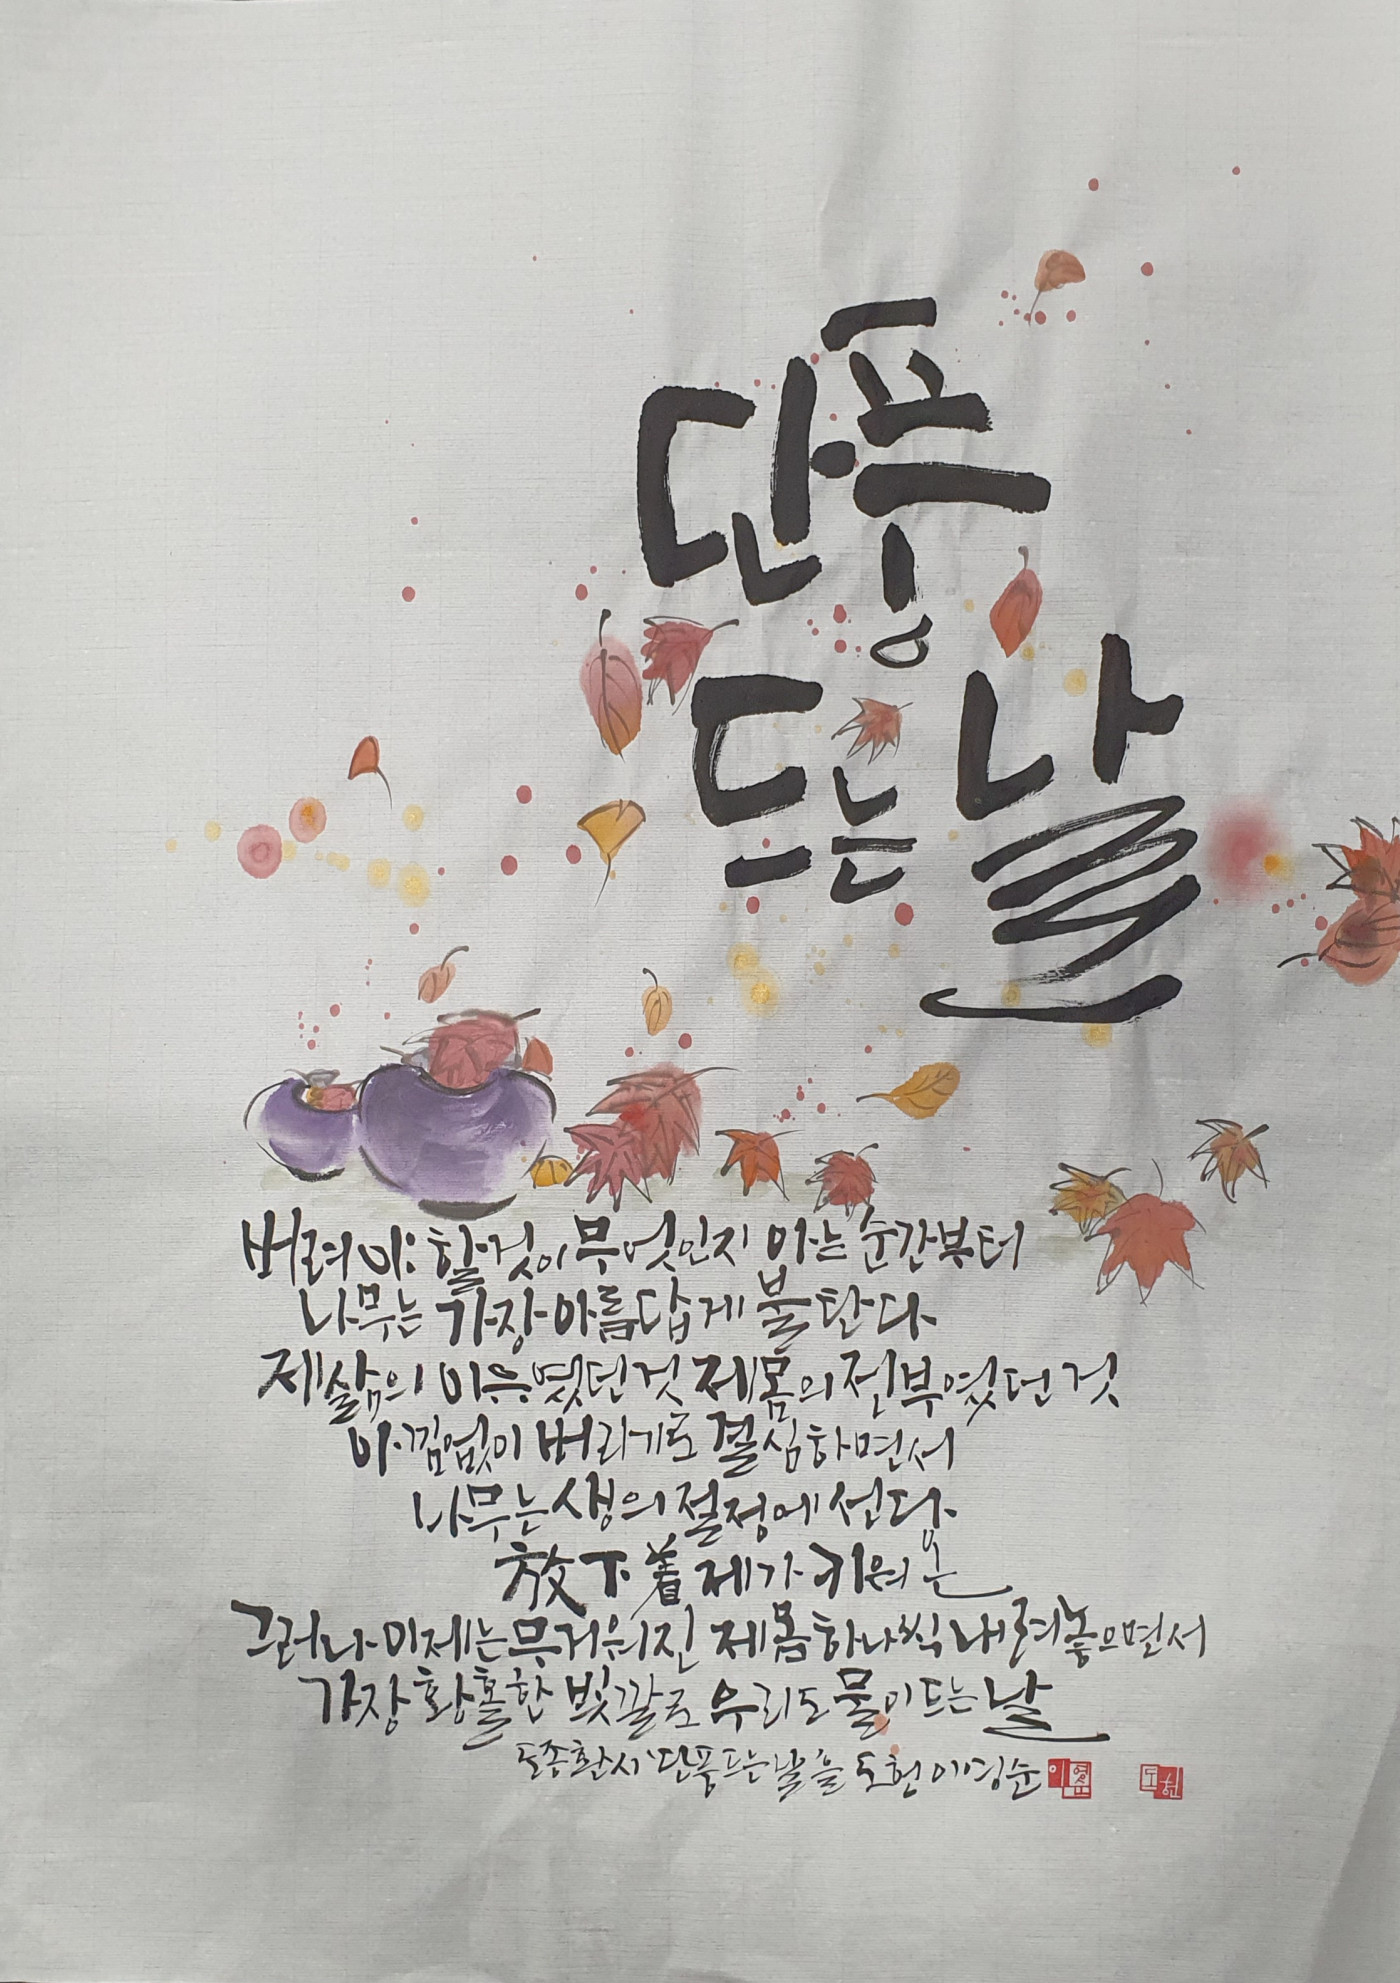 단풍
드는 날
버려야 할 것이 무엇인지 아는 순간부터
나무는 가장 아름답게 불탄다
제 삶의 이유였던 것 제 몸의 전부였던 것
아낌없이 버리기로 결심하면서
나무는 생의 절정에 선다
放下着 제가 키워 온
그러나 이제는 무거워진 제 몸 하나씩 내려놓으면서
가장 황홀한 빛깔로 우리도 물이 드는 날
도종환 시 '단풍드는 날'을 도현 이영순 이영순 도현